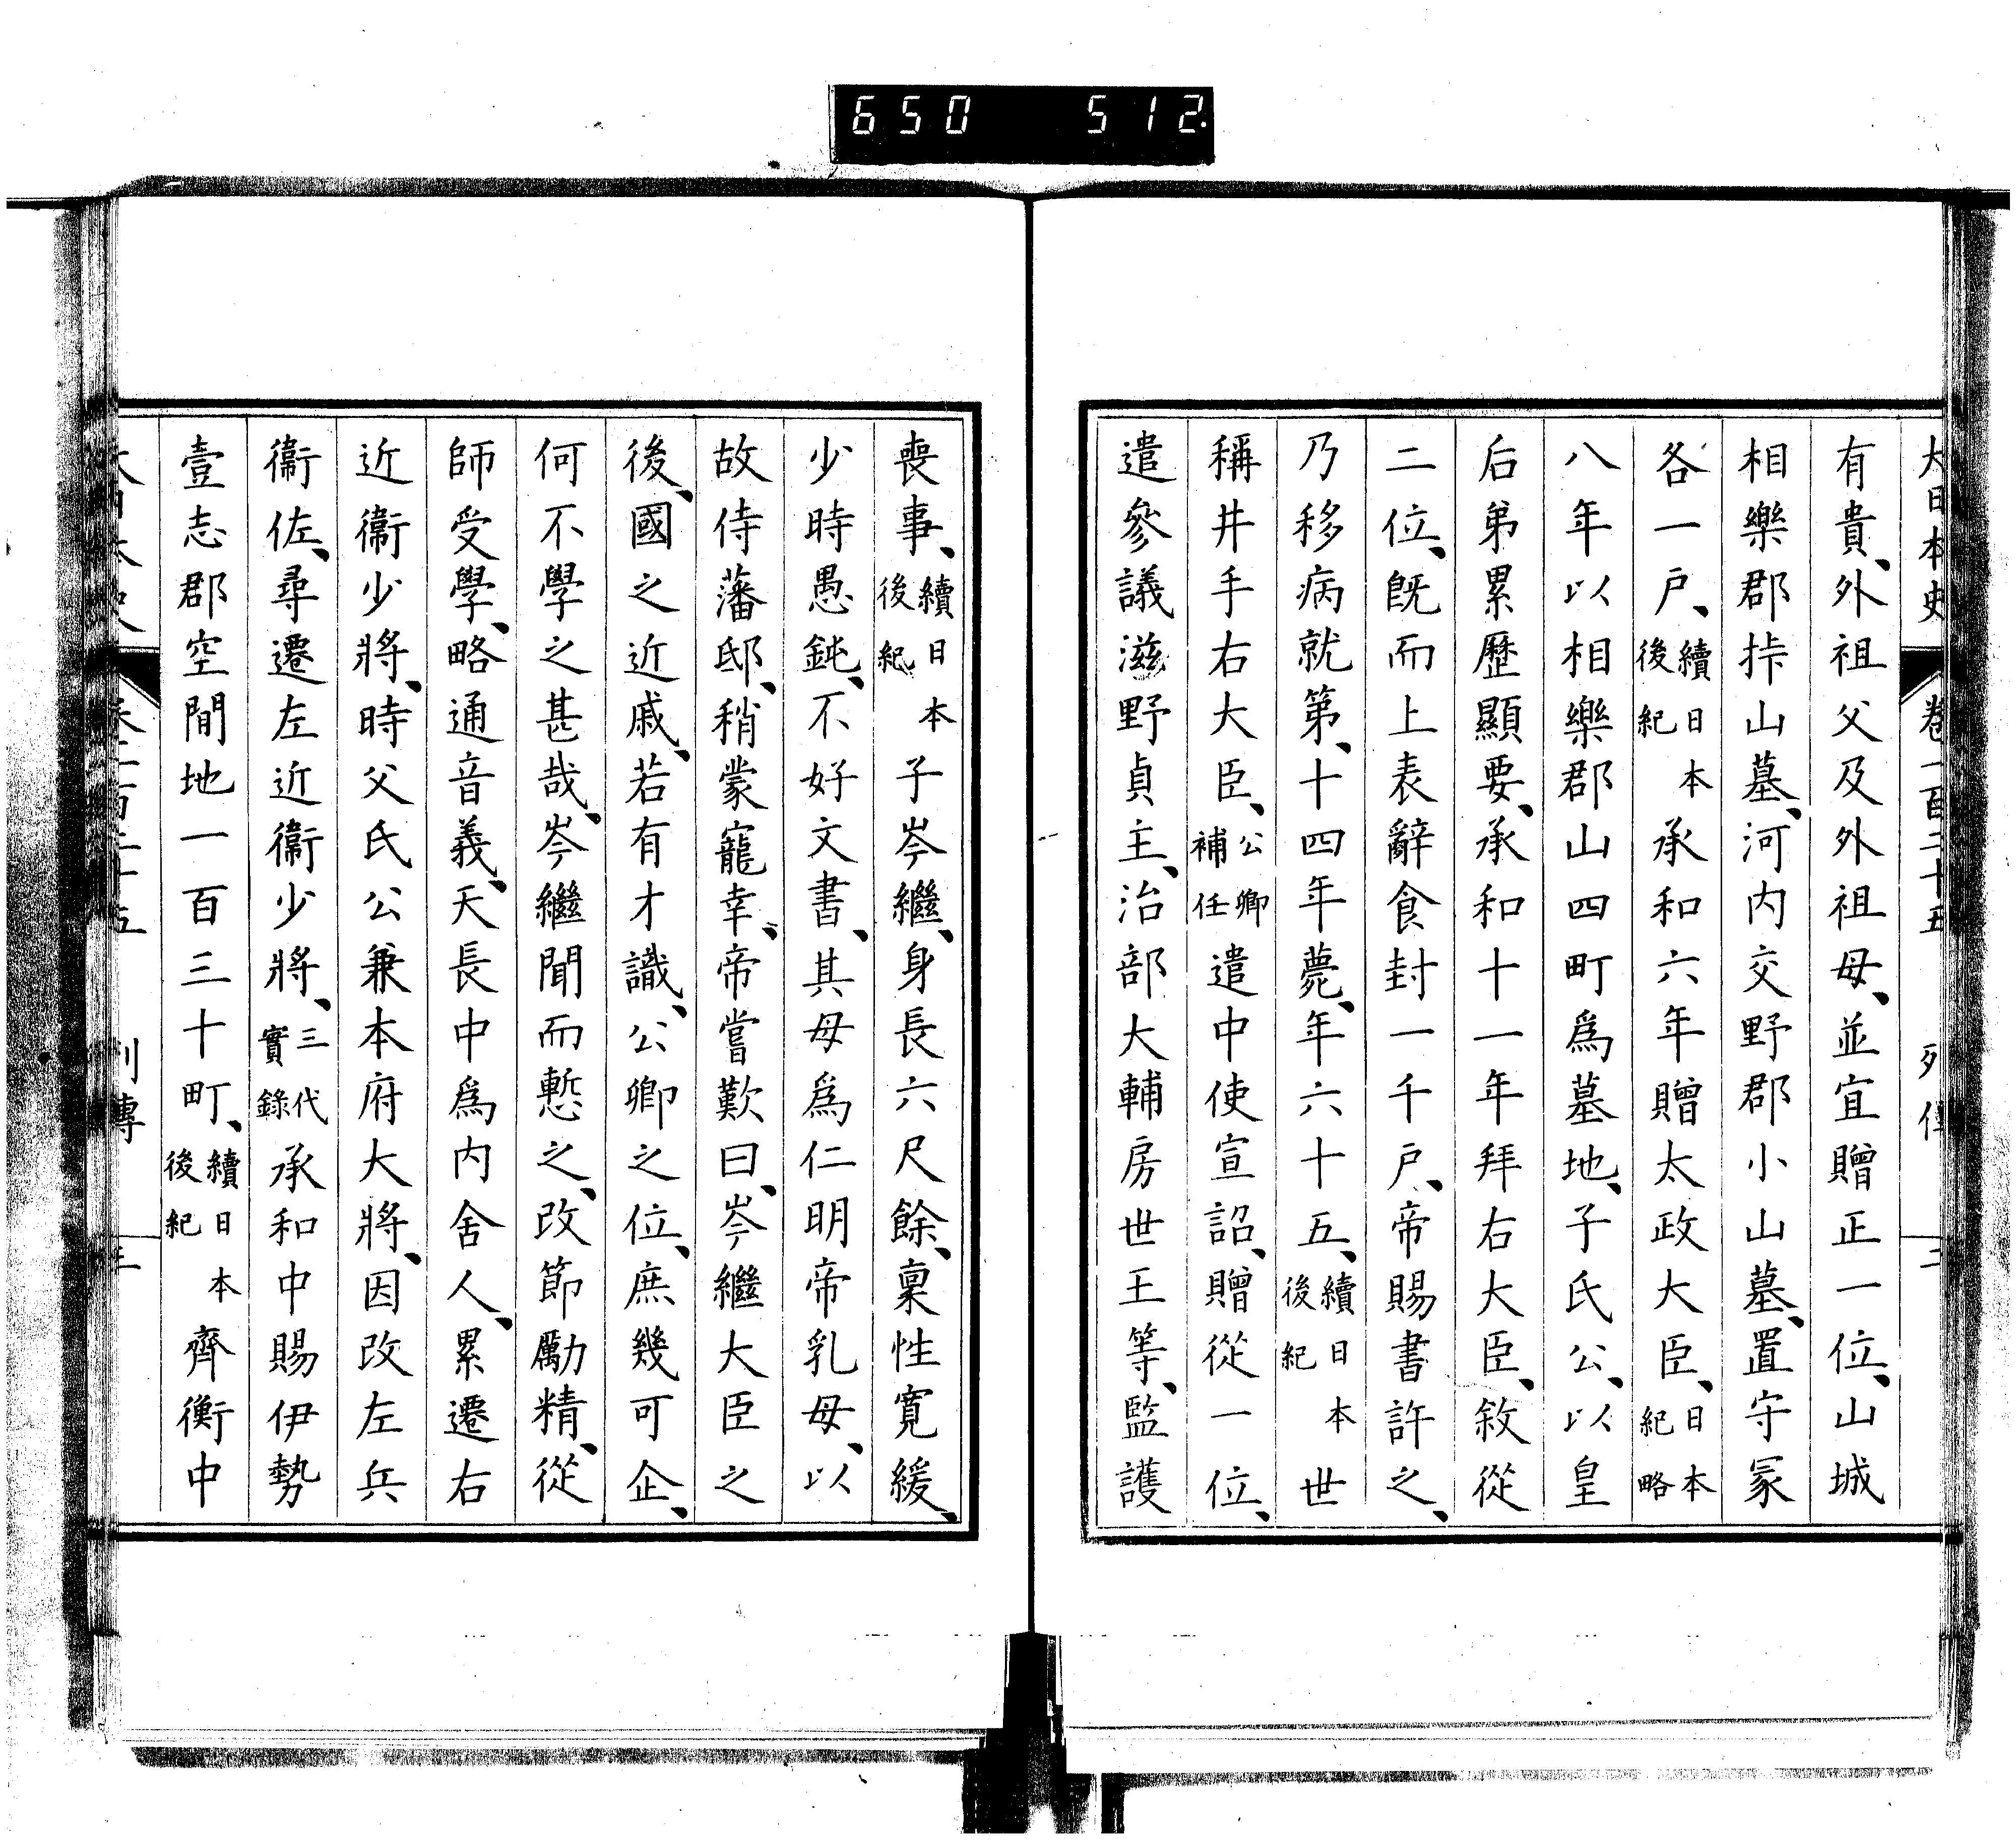 650 512
大日本史 卷一百二十五 列傳 二
有貴、外祖父及外祖母、並宜贈正一位、山城
相樂郡挊山墓、河內交野郡小山墓、置守冢
各一戶、續日本後紀 承和六年贈太政大臣、日本紀略
八年以相樂郡山四町爲墓地、子氏公、以皇
后弟累歷顯要、承和十一年拜右大臣、敘從
二位、旣而上表辭食封一千戶、帝賜書許之、
乃移病就第、十四年薨、年六十五、續日本後紀 世
稱井手右大臣、公卿補任 遣中使宣詔、贈從一位、
遣參議滋野貞主、治部大輔房世王等、監護
喪事、續日本後紀 子岑繼、身長六尺餘、稟性寬緩、
少時愚鈍、不好文書、其母爲仁明帝乳母、以
故侍藩邸、稍蒙寵幸、帝嘗歎曰、岑繼大臣之
後、國之近戚、若有才識、公卿之位、庶幾可企、
何不學之甚哉、岑繼聞而慙之、改節勵精、從
師受學、略通音義、天長中爲內舍人、累遷右
近衞少將、時父氏公兼本府大將、因改左兵
衞佐、尋遷左近衞少將、三代實錄 承和中賜伊勢
壹志郡空閒地一百三十町、續日本後紀 齊衡中
列傳 三